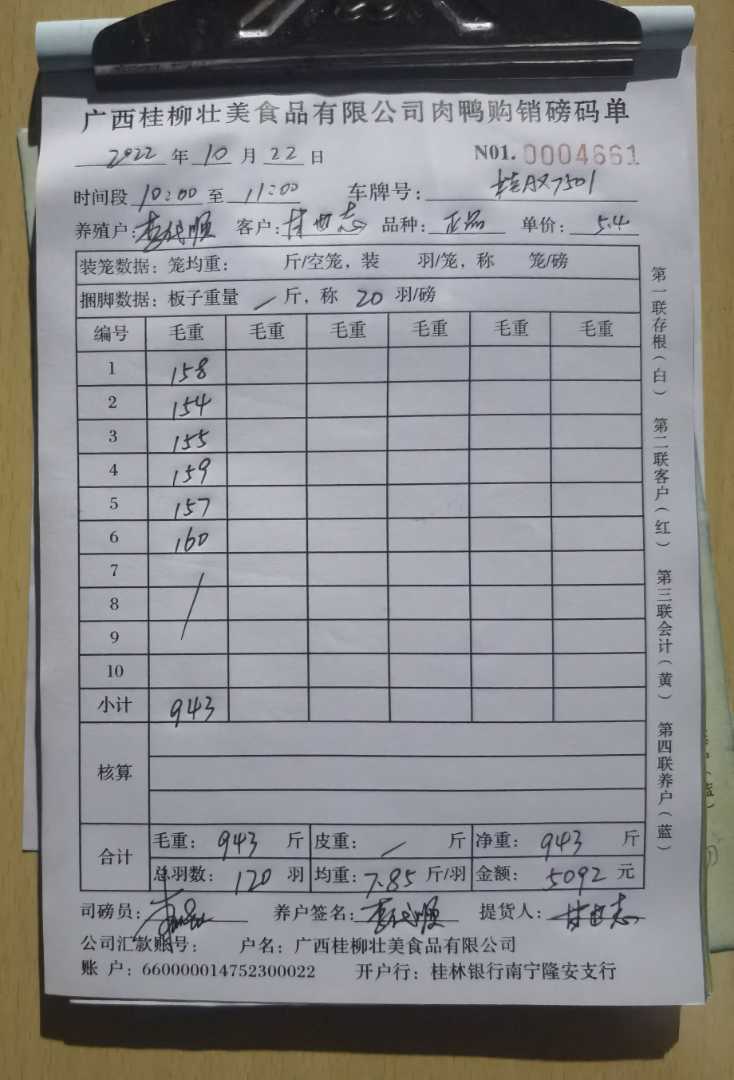 广西桂柳壮美食品有限公司肉鸭购销磅码单
2022 年 10 月 22 日 N01. 0004661
时间段 10:00 至 11:00 车牌号: 桂AX7501
养殖户: 客户: 甘世志 品种: 正品 单价: 5.4
装笼数据: 笼均重: 斤/空笼, 装 羽/笼, 称 笼/磅
捆脚数据: 板子重量 / 斤, 称 20 羽/磅
编号 毛重 毛重 毛重 毛重 毛重 毛重
1 158
2 154
3 155
4 159
5 157
6 160
7
8 /
9
10
小计 943
核算
合计 毛重: 943 斤 皮重: / 斤 净重: 943 斤
总羽数: 120 羽 均重: 7.85 斤/羽 金额: 5092 元
司磅员: 养户签名: 提货人: 甘世志
公司汇款账号: 户名: 广西桂柳壮美食品有限公司
账 户: 660000014752300022 开户行: 桂林银行南宁隆安支行
第一联存根(白) 第二联客户(红) 第三联会计(黄) 第四联养户(蓝)